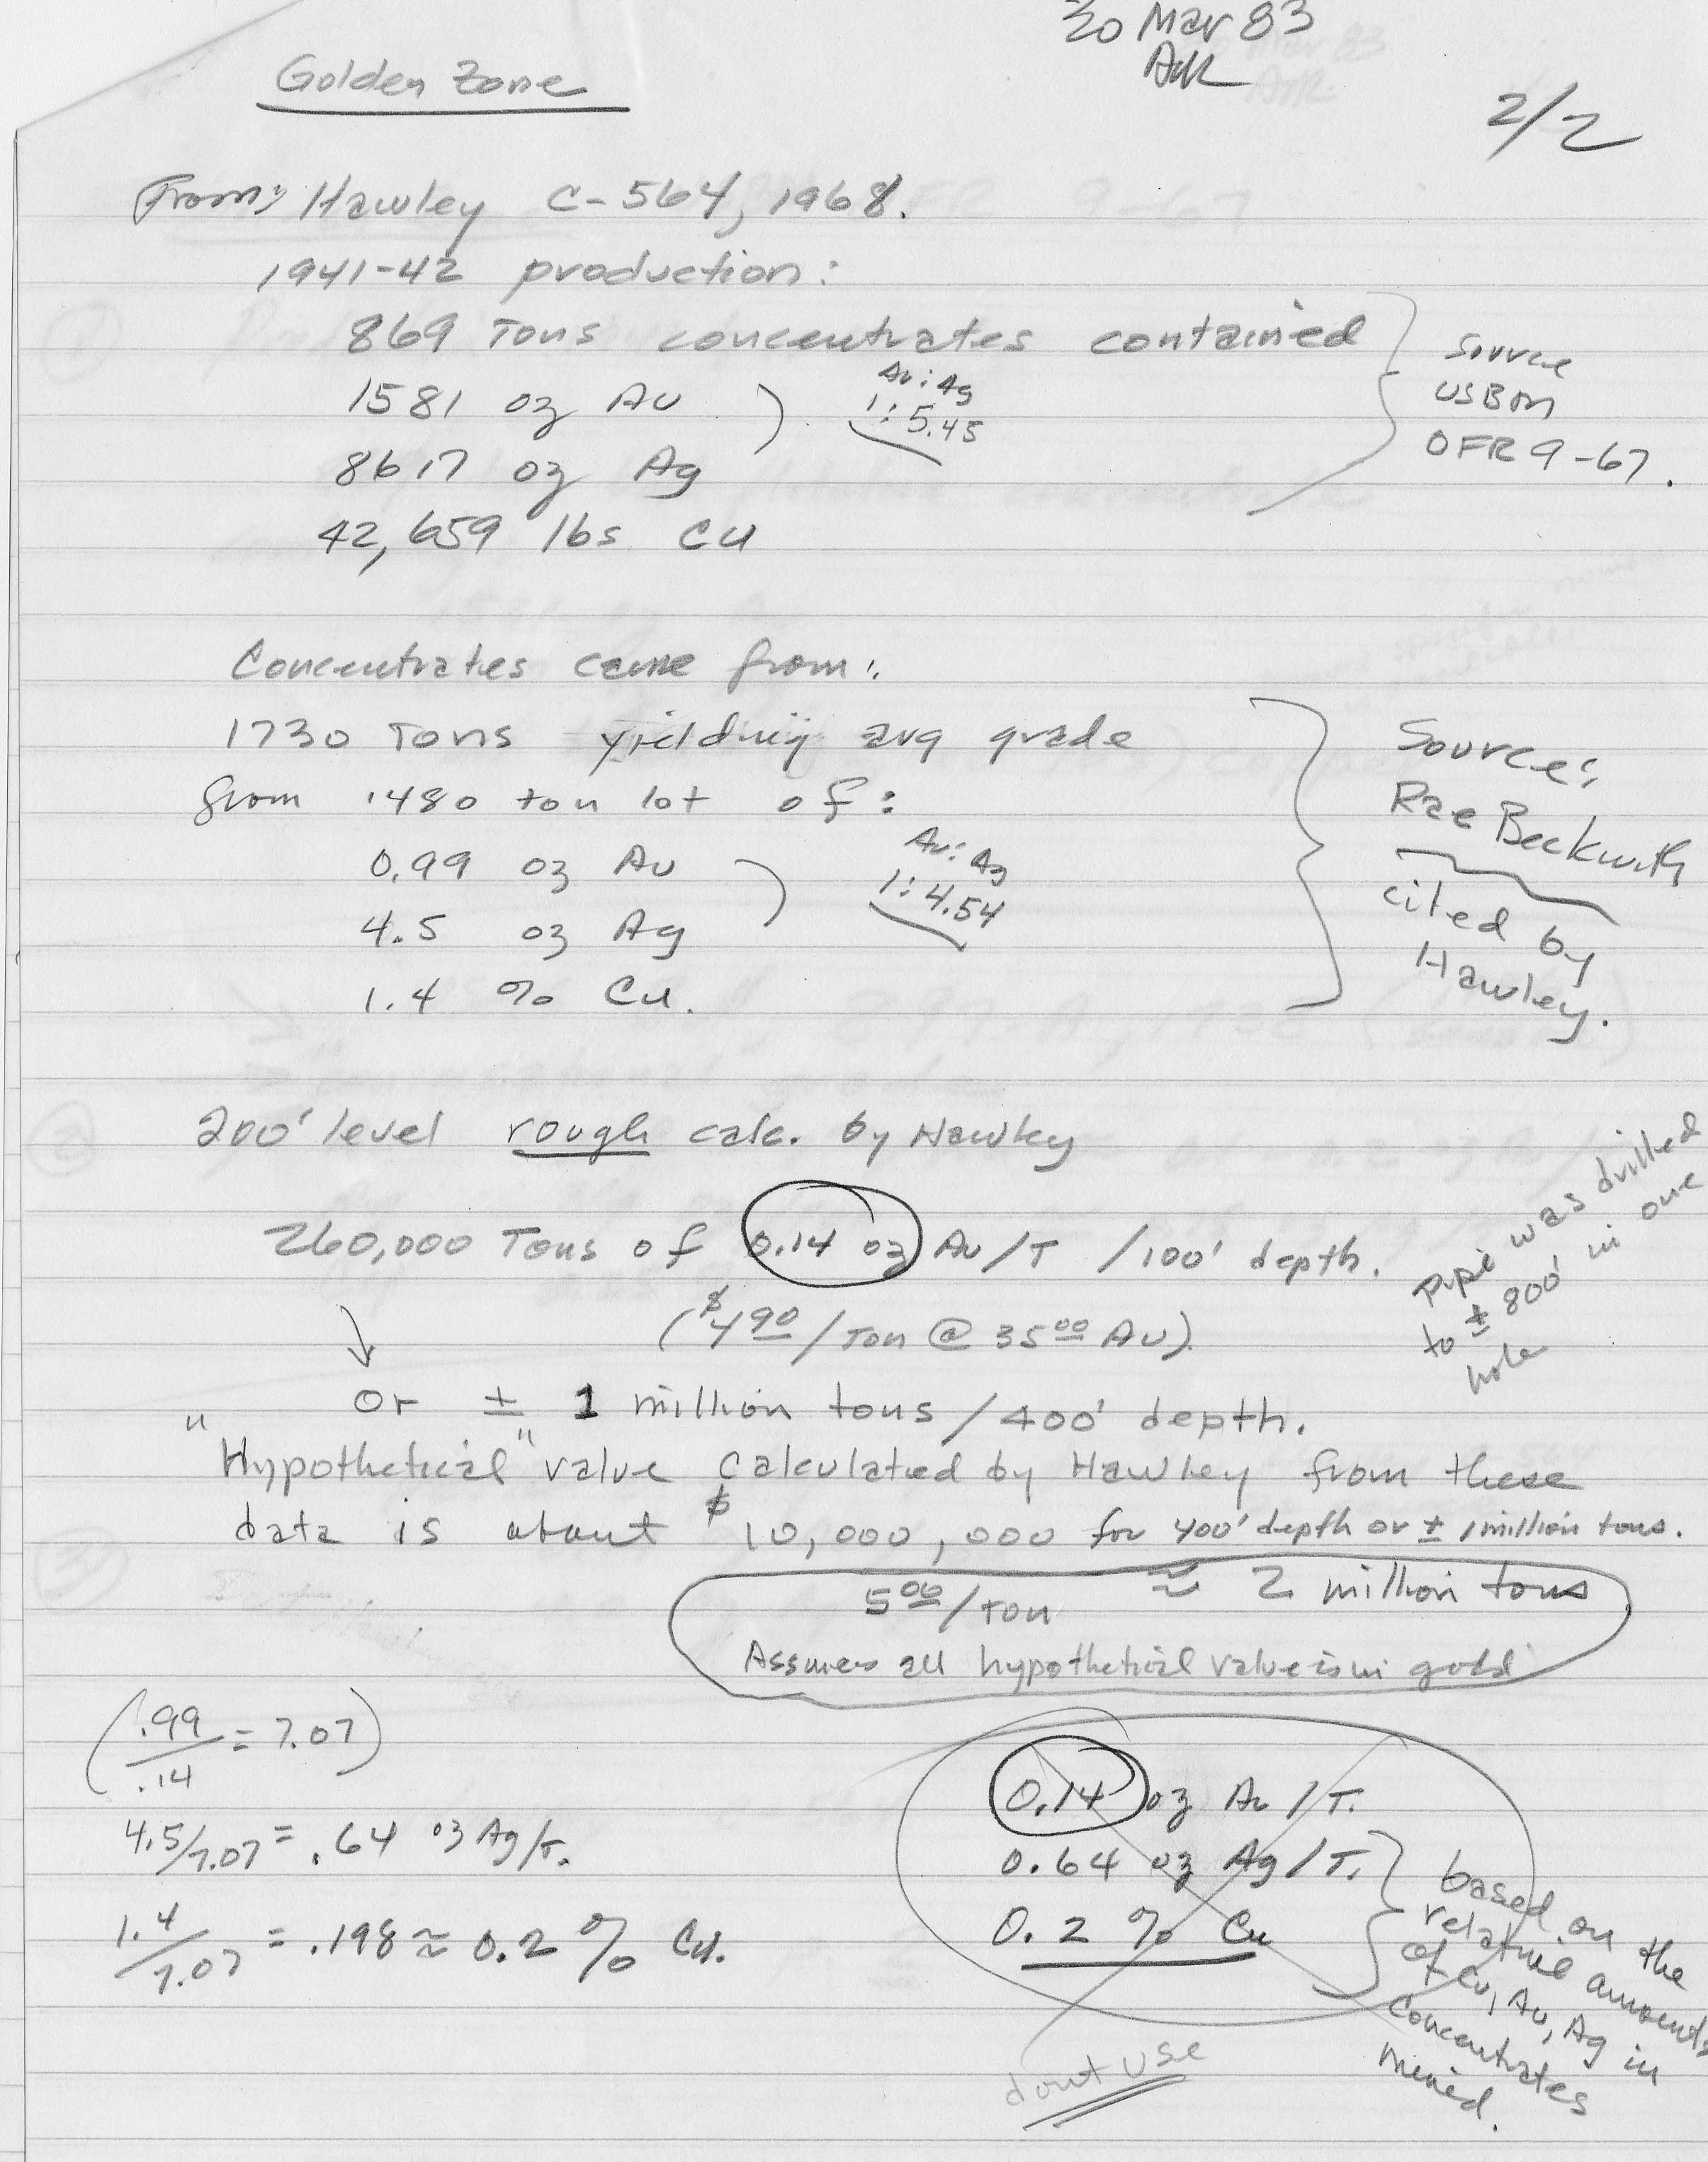 30 Mar 83
Golden Zone
2/2
From: Hawley C-564, 1968.
1941-42 production:
869 Tons concentrates contained
1581 oz Au
8617 oz Ag
42,659 lbs Cu
Au:Ag
1:5.45
Source
USBM
OFR 9-67.
Concentrates came from:
1730 Tons yielding avg grade
from 1480 ton lot of:
0.99 oz Au
4.5 oz Ag
1.4 % Cu.
Au:Ag
1:4.54
Source:
Rae Beckwith
cited by
Hawley.
200' level rough calc. by Hawley
260,000 Tons of 0.14 oz Au/T /100' depth.
($4.90/Ton @ 35.00 Au)
pipe was drilled
to ± 800' in one
hole
or ± 1 million tons/400' depth.
"Hypothetical" value calculated by Hawley from these
data is about $10,000,000 for 400' depth or ± 1 million tons.
5.00/Ton ≈ 2 million tons
Assumes all hypothetical value is in gold
(.99/.14 = 7.07)
4.5/7.07 = .64 oz Ag/T.
1.4/7.07 = .198 ≈ 0.2 % Cu.
0.14 oz Au/T.
0.64 oz Ag/T.
0.2 % Cu
based on the
relative amounts
of Cu, Au, Ag in
concentrates
mined.
dont use